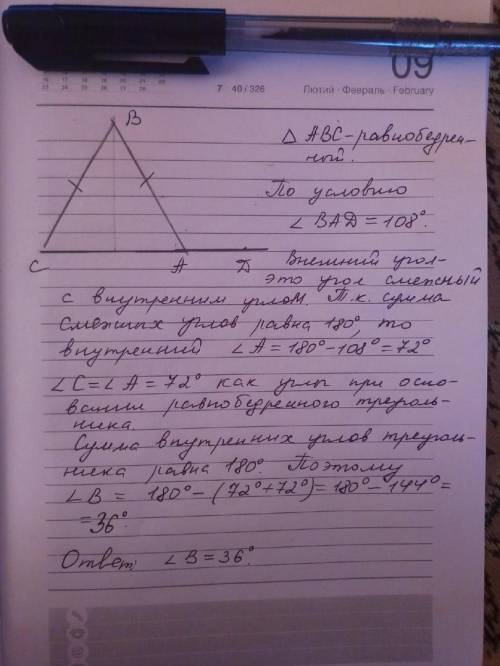 09
7 40 / 326
Лютий · Февраль · February
B
C
A
D
△ ABC – равнобедрен-
ный.
По условию
∠BAD = 108°.
Внешний угол-
это угол смежный
с внутренним углом. Т.к. сумма
смежных углов равна 180°, то
внутренний ∠A = 180° – 108° = 72°
∠C = ∠A = 72° как углы при осно-
вании равнобедренного треуголь-
ника.
Сумма внутренних углов треуголь-
ника равна 180°. Поэтому
∠B = 180° – (72° + 72°) = 180° – 144° =
= 36°
Ответ: ∠B = 36°.